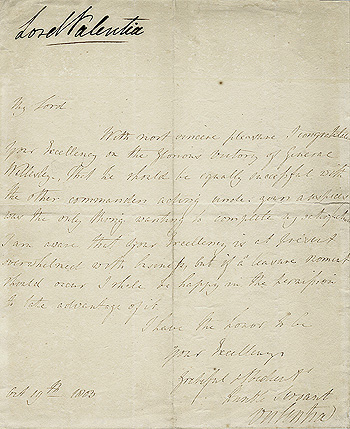 Lord Valentia
My Lord
With most sincere pleasure I congratulate
Your Excellency on the glorious victory of General
Wellesley, that he should be equally successful with
the other commanders acting under your auspices
was the only thing wanting to complete my
I am aware that Your Excellency is at present
overwhelmed with business, but if a leasure moment
should occur I shall be happy in the permission
to take advantage of it.
I have the honor to be
Your Excellencys
grateful & obedient
Servant
Valentia
Oct 19th 1803